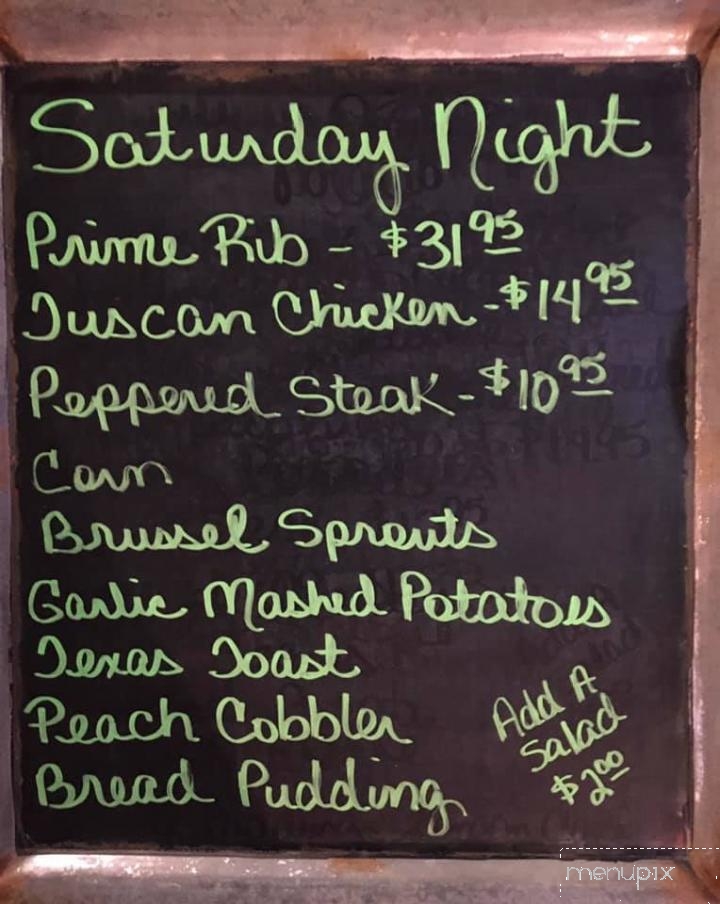 Saturday Night
Prime Rib - $31.95
Tuscan Chicken - $14.95
Peppered Steak - $10.95
Corn
Brussel Sprouts
Garlic Mashed Potatoes
Texas Toast
Peach Cobbler
Bread Pudding
Add A
Salad
$2.00
menupix